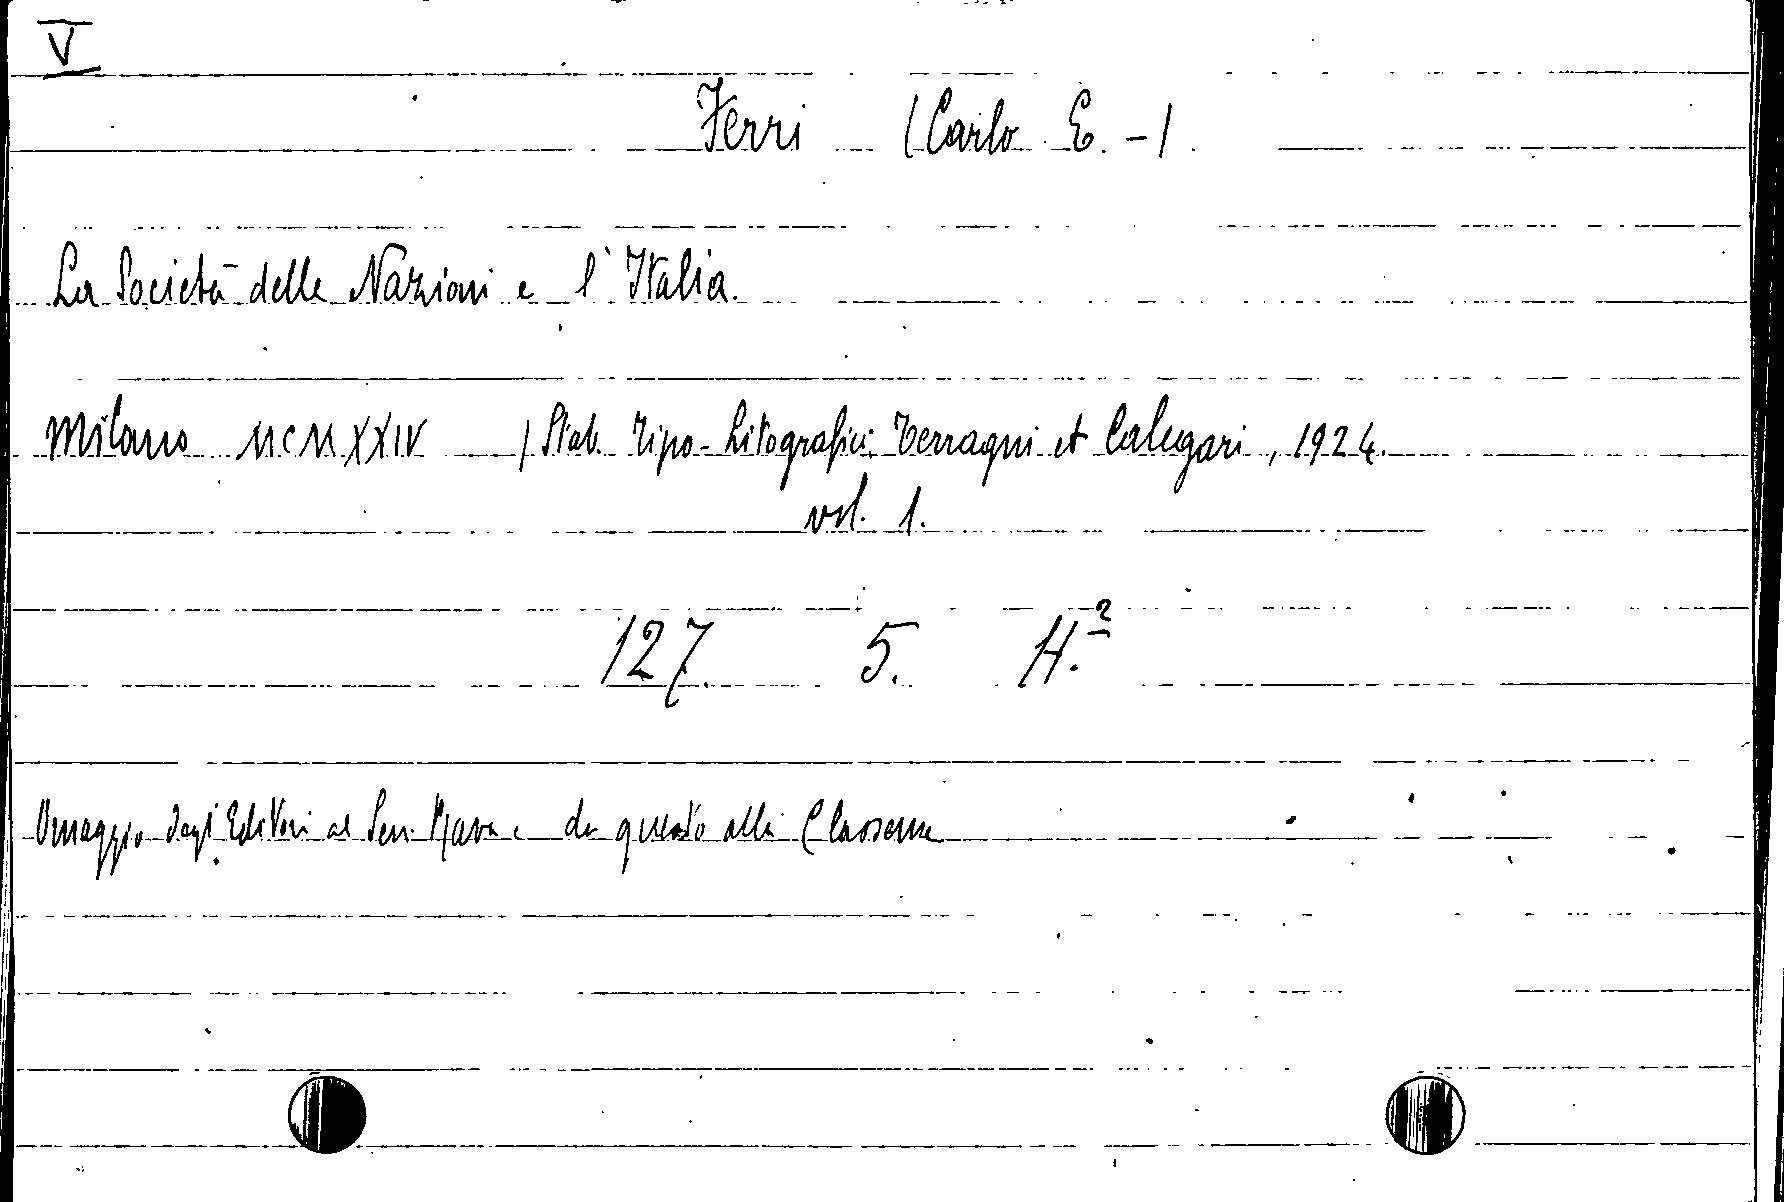 V
Ferri (Carlo E. -)
La Società delle Nazioni e l'Italia.
Milano MCMXXIV (Stab. Tipo-Litografici Terragni et Calegari, 1924.
vol. 1.
127. 5. H.2
Omaggio degl'Editori al Sen. Rava e da questo alla Classense